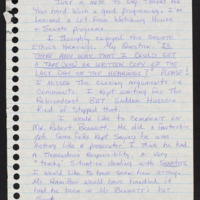 Just a note to say thanks for
your hard work & good programming. I've
learned a lot from watching House
& Senate programs.
I thoroughly enjoyed the Senate
Ethics Hearings. My Question: Is
there any way that I could get
a tape and or written copy of the
last day of the hearings? Please!
I missed the closing arguments &
comments. I kept waiting for the
rebroadcast but Saddam Hussein
kind of stopped that.
I would like to comment on
Mr. Robert Bennett. He did a fantastic
job. Some folks kept saying he was
acting like a prosecutor. I think he had
a tremendous responsibility. A very
"tricky" situation dealing with Senators.
I would like to have seen how attorn.
Mr. Hamilton would have handled it
had he been in Mr. Bennett's hot